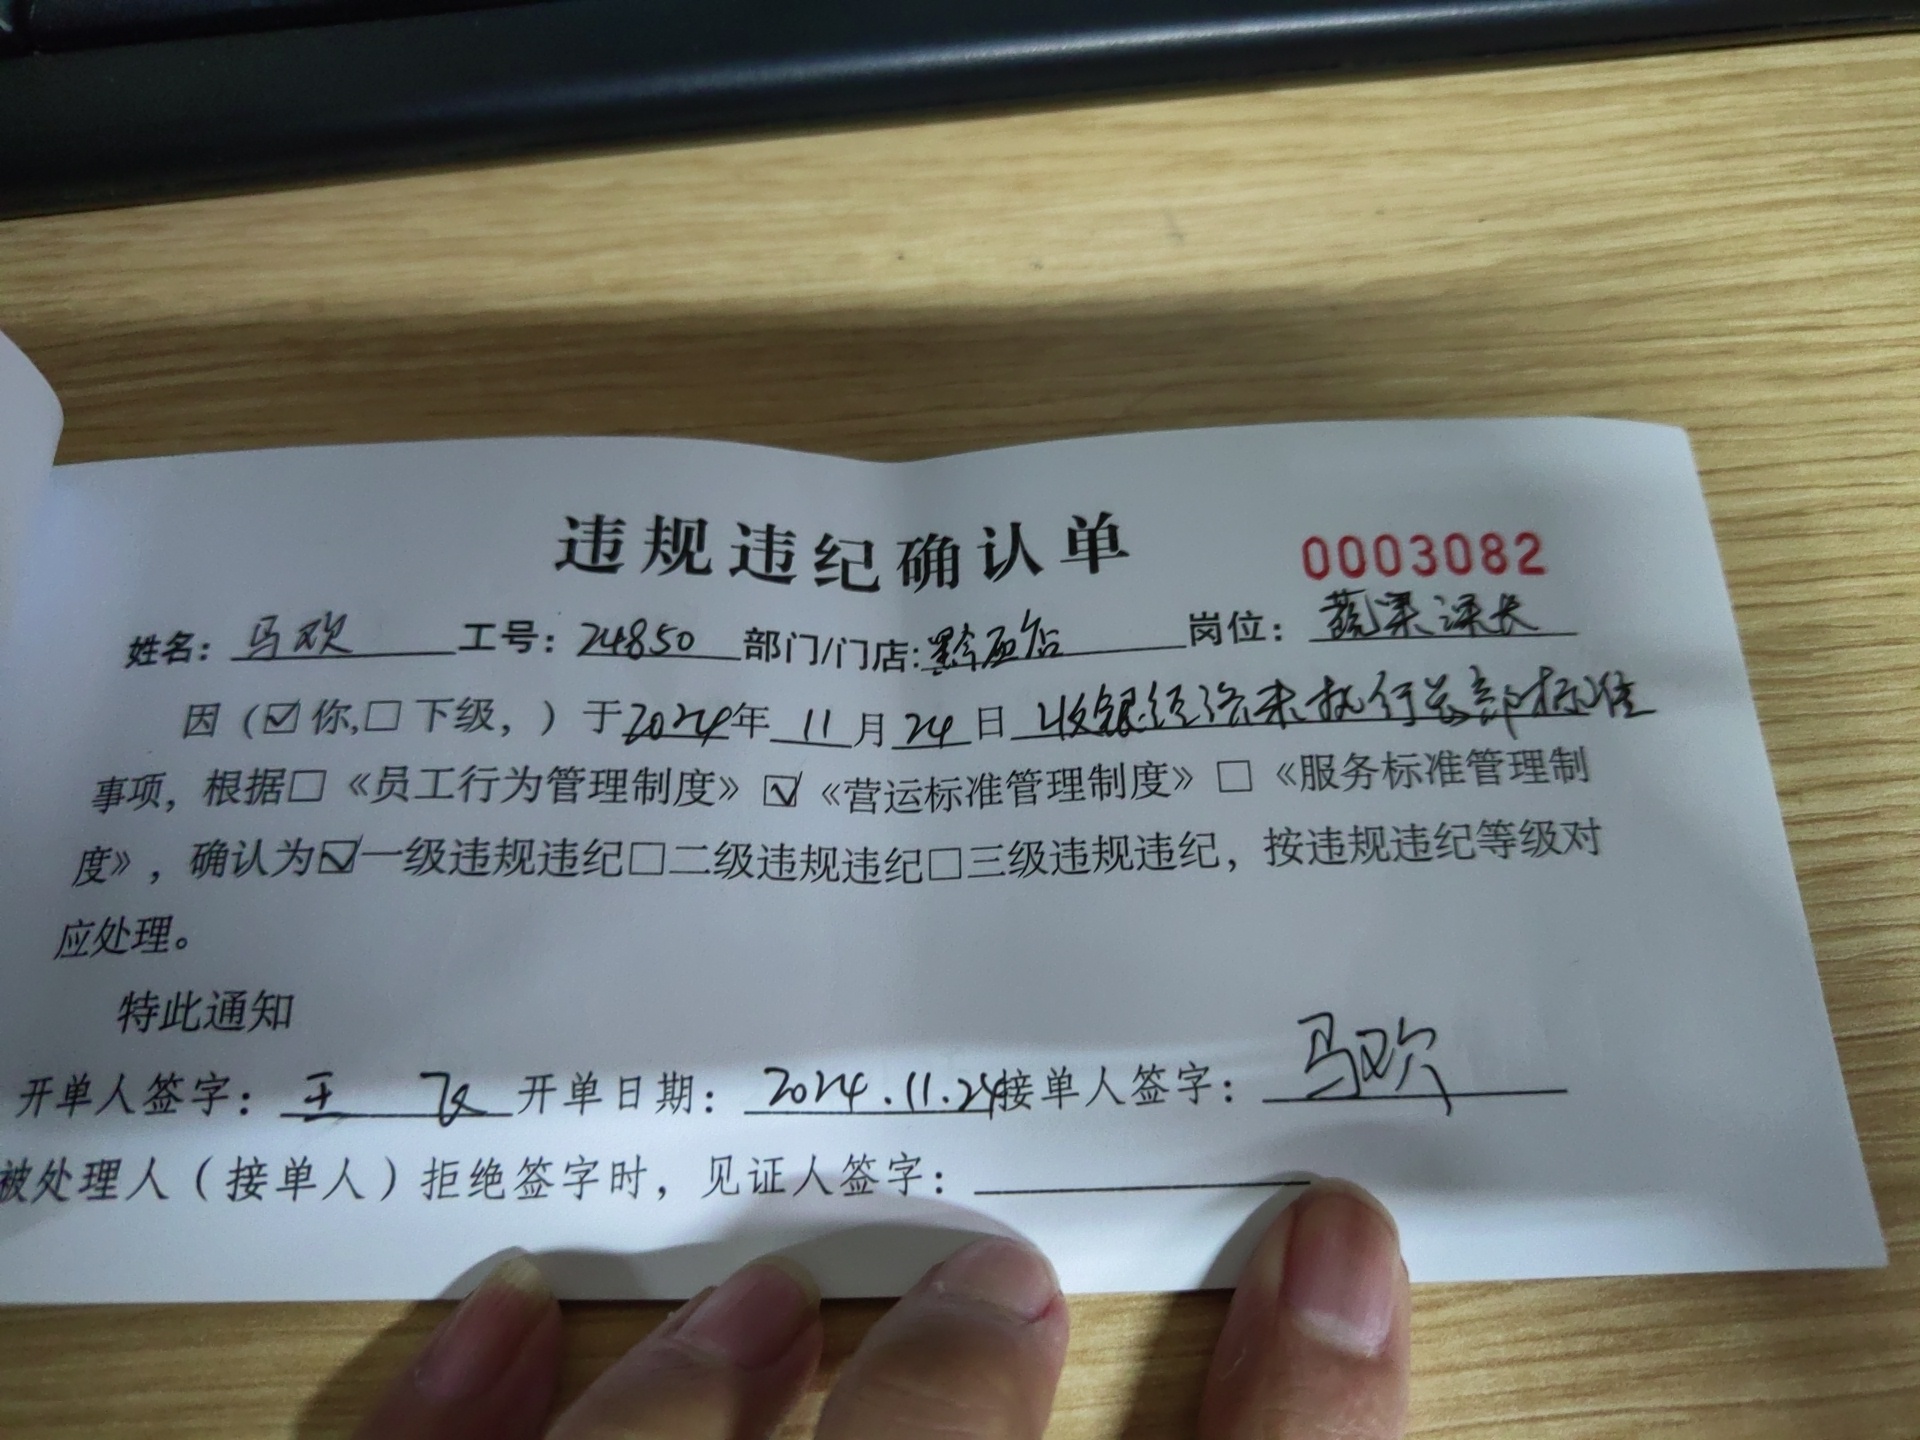 违规违纪确认单
0003082
姓名：马欢 工号：24850 部门/门店：黔西店 岗位：蔬果课长
因（☑你,□下级，）于2024年11月24日 收银经治未执行总部标准
事项，根据□《员工行为管理制度》☑《营运标准管理制度》□《服务标准管理制
度》，确认为☑一级违规违纪□二级违规违纪□三级违规违纪，按违规违纪等级对
应处理。
特此通知
开单人签字：王飞 开单日期：2024.11.24 接单人签字：马欢
被处理人（接单人）拒绝签字时，见证人签字：